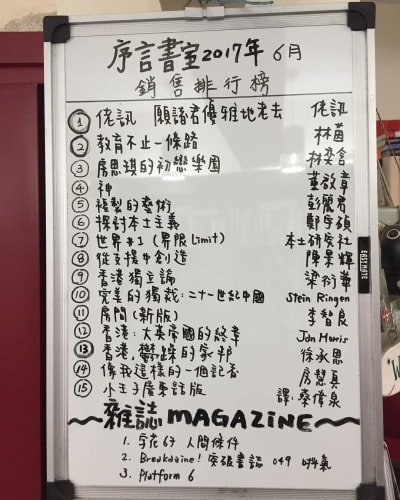 序言書室2017年 6月
銷售排行榜
① 佬訊 願諸君優雅地老去 佬訊
② 教育不止一條路 林茵
③ 房思琪的初戀樂園 林奕含
④ 神 董啟章
⑤ 複製的藝術 彭麗君
⑥ 探討本土主義 鄭宇碩
⑦ 世界#1 (界限Limit) 本土研究社
⑧ 從支援中創造 陳景輝
⑨ 香港獨立論 梁衍華
⑩ 完美的獨裁：二十一世紀中國 Stein Ringen
⑪ 房間(新版) 李智良
⑫ 香港：大英帝國的終章 Jan Morris
⑬ 香港，鬱躁的家邦 徐承恩
⑭ 像我這樣的一個記者 房慧真
⑮ 小王子廣東話版 譯：蔡偉泉
~雜誌 MAGAZINE~
1. 字花67 人間條件
2. Breakdazine! 突破書誌 049
3. Platform 6
EASTMATE